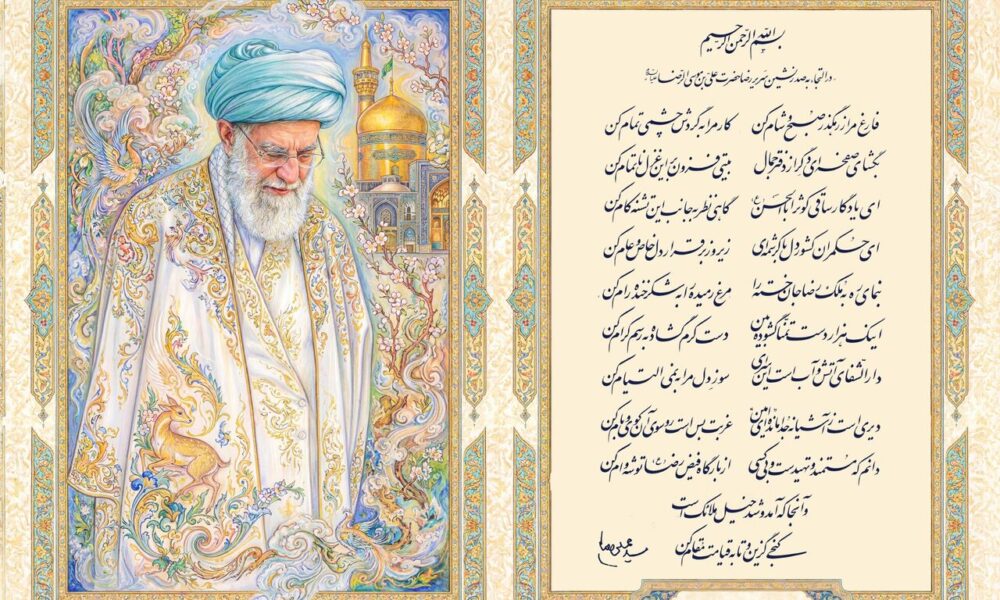 بسم الله الرحمن الرحیم
در التجا به صدرنشین سریر رضا حضرت علی بن موسی الرضا
فارغ مرا ز رهگذر صبح و شام کن کار مرا به گردش چشمی تمام کن
بگشای صفحه‌ای دگر از دفتر جمال بیتی فزون بر این غزل ناتمام کن
ای یادگار ساقی کوثر اباالحسن گاهی نظر به جانب این تشنه کام کن
ای حکمران کشور دل با کرشمه‌ای زیر و زبر قرار دل خاص و عام کن
بنمای ره به ملک رضا جان خسته را مرغ رمیده را به شکرخنده رام کن
اینک هزار دست تمنا گشوده بین دست کرم گشاده به رسم کرام کن
دارالشفای آتش و آب است این سرای سوز دل مرا به نمی التیام کن
دیری است ز آشیانه جدا مانده‌ای امین غربت بس است رو سوی آن کوی و بام کن
دانم که مستمند و تهیدست و بی‌کسی از بارگاه فیض رضا توشه وام کن
و آنجا که آمد و شد خیل ملائک است
کنجی گزین و تا به قیامت مقام کن